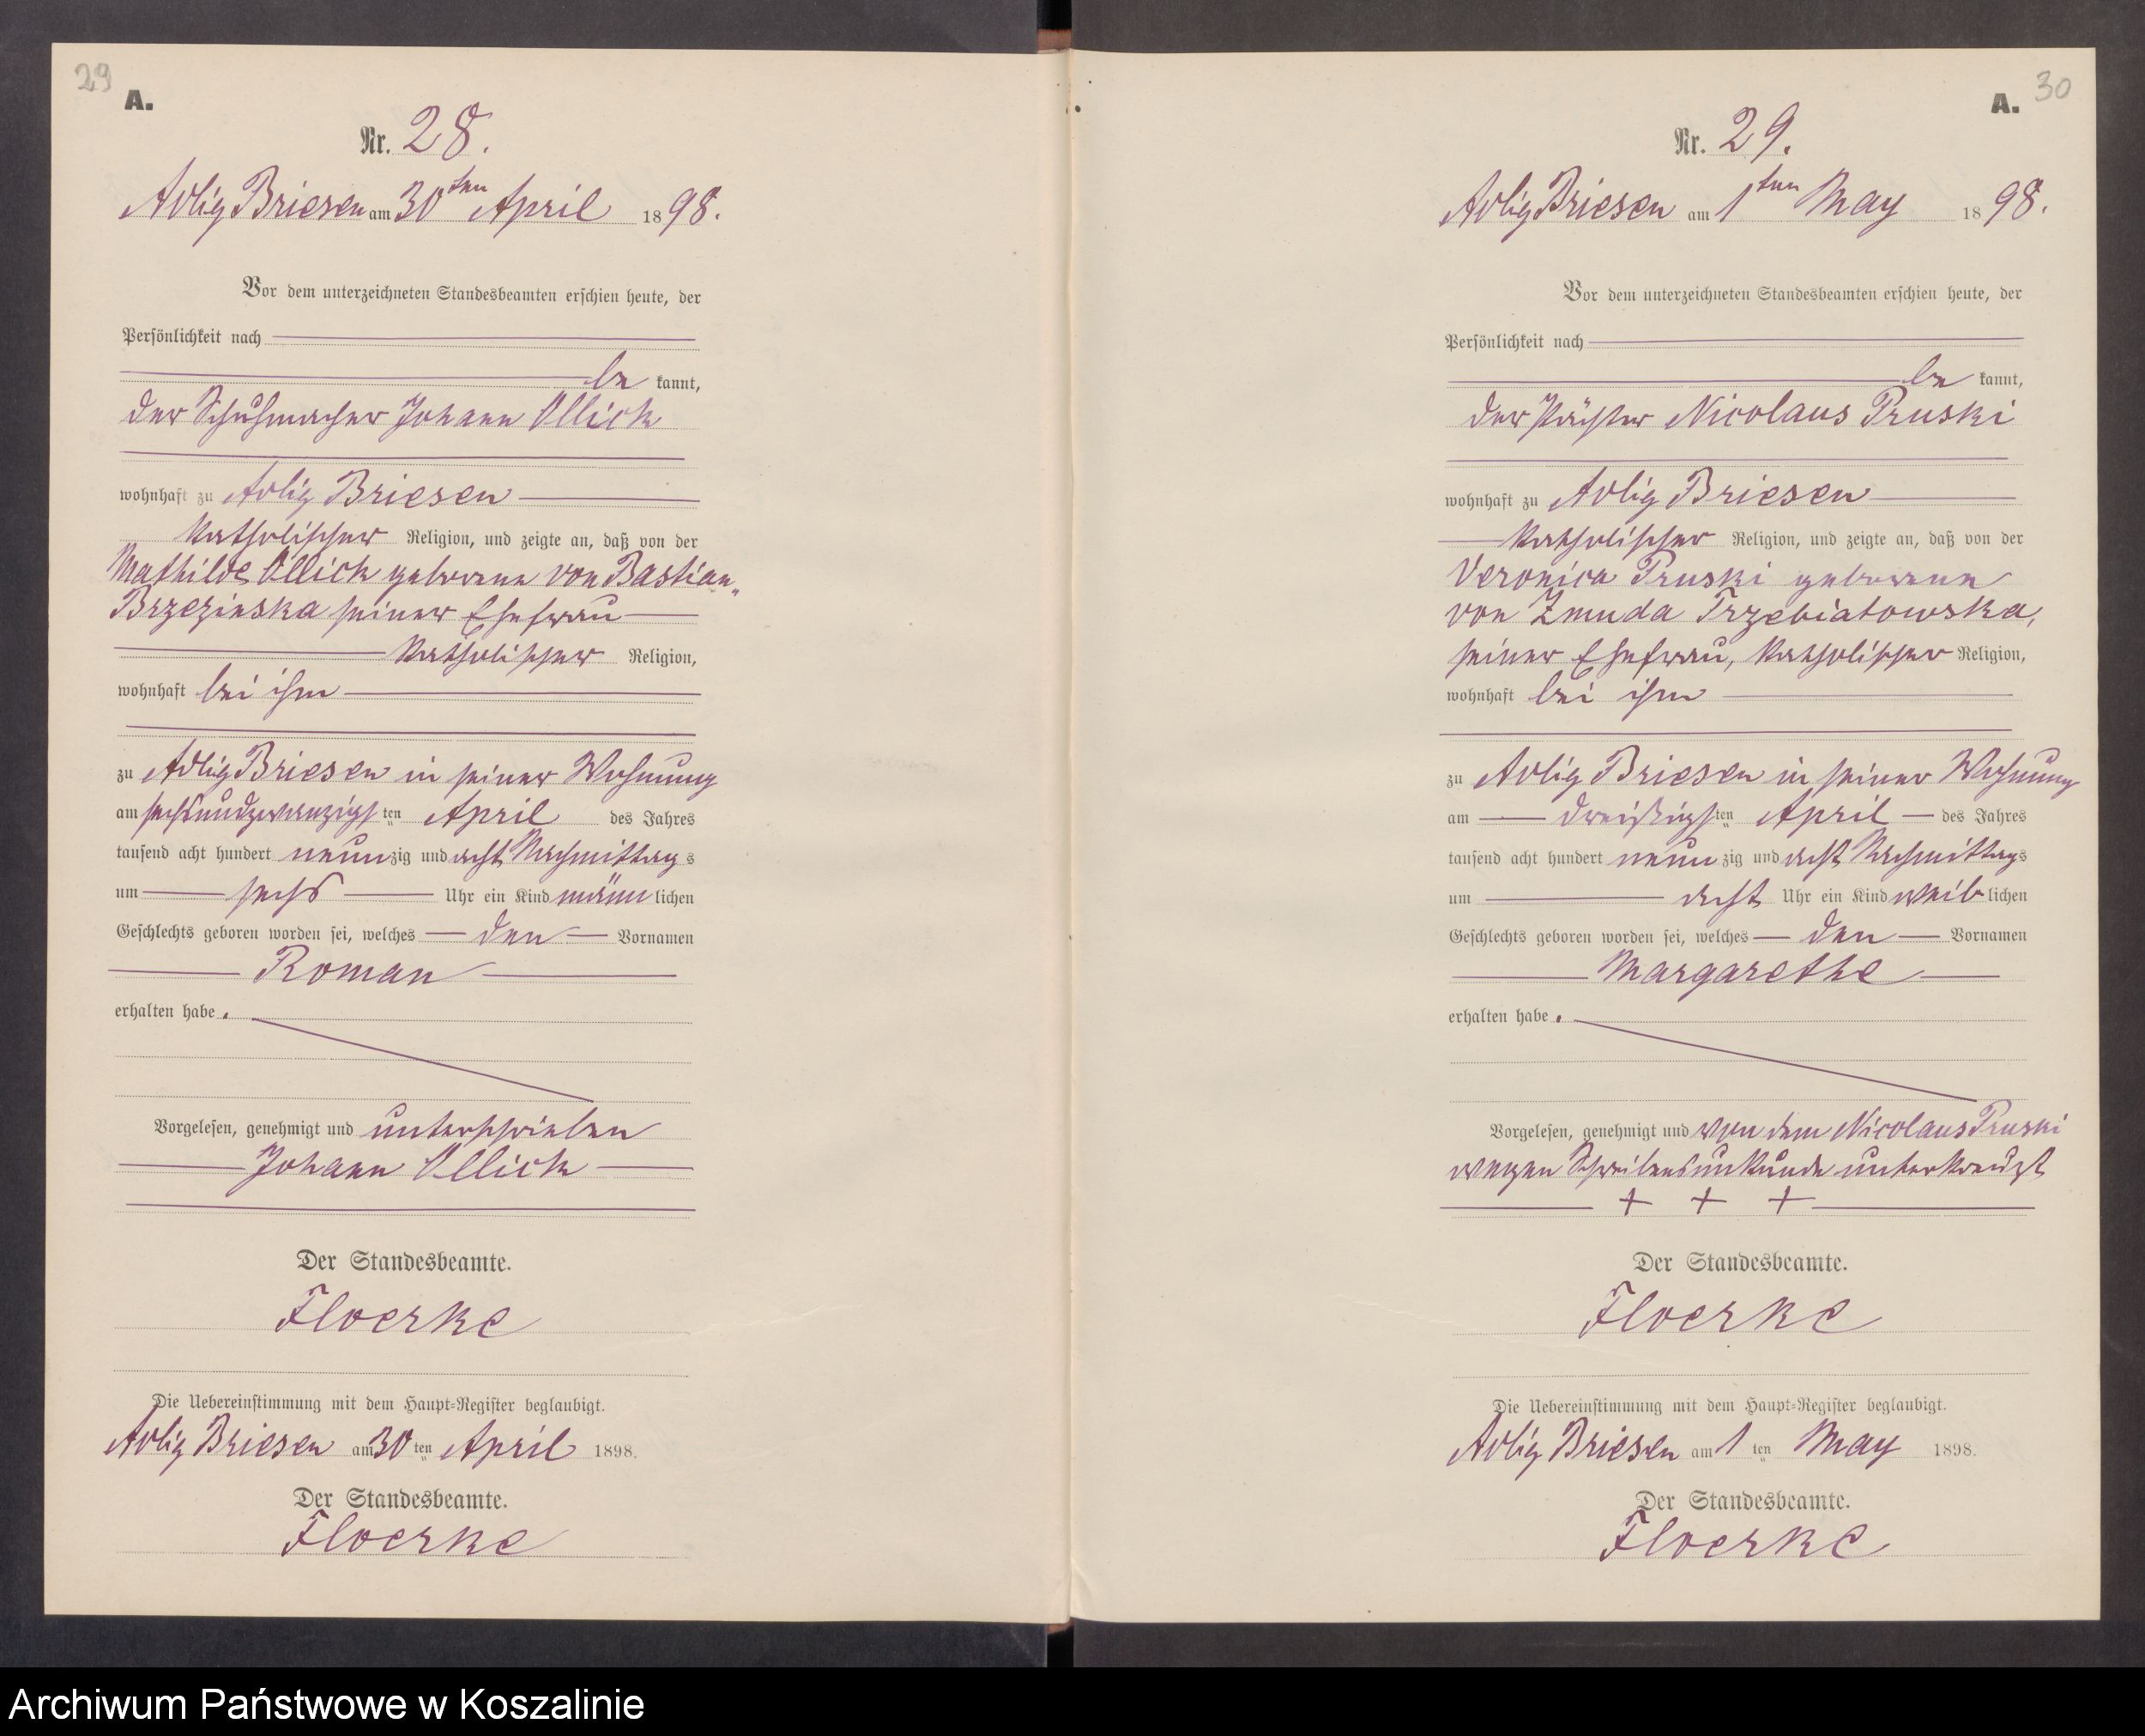 29
A.
Nr. 28.
Adlig Briesen am 30ten April 1898.
Vor dem unterzeichneten Standesbeamten erschien heute, der
Persönlichkeit nach
be kannt,
der Schuhmacher Johann Ollich
wohnhaft zu Adlig Briesen
katholischer Religion, und zeigte an, daß von der
Mathilde Ollich geborene von Bastian„
Brzezinska seiner Ehefrau
katholischer Religion,
wohnhaft bei ihm
zu Adlig Briesen in seiner Wohnung
am sechsundzwanzigsten April des Jahres
tausend acht hundert neunzig und acht Nachmittags
um sechs Uhr ein Kind männlichen
Geschlechts geboren worden sei, welches den Vornamen
Roman
erhalten habe.
Vorgelesen, genehmigt und unterschrieben
Johann Ollich
Der Standesbeamte.
Floerke
Die Uebereinstimmung mit dem Haupt-Register beglaubigt.
Adlig Briesen am 30ten April 1898.
Der Standesbeamte.
Floerke
A. 30
Nr. 29.
Adlig Briesen am 1ten May 1898.
Vor dem unterzeichneten Standesbeamten erschien heute, der
Persönlichkeit nach
be kannt,
der Pächter Nicolaus Pruski
wohnhaft zu Adlig Briesen
katholischer Religion, und zeigte an, daß von der
Veronica Pruski geborene
von Zmuda Trzebiatowska,
seiner Ehefrau, katholischer Religion,
wohnhaft bei ihm
zu Adlig Briesen in seiner Wohnung
am dreißigsten April des Jahres
tausend acht hundert neunzig und acht Nachmittags
um acht Uhr ein Kind weiblichen
Geschlechts geboren worden sei, welches den Vornamen
Margarethe
erhalten habe.
Vorgelesen, genehmigt und von dem Nicolaus Pruski
wegen Schreibensunkunde unterkreuzt
+ + +
Der Standesbeamte.
Floerke
Die Uebereinstimmung mit dem Haupt-Register beglaubigt.
Adlig Briesen am 1ten May 1898.
Der Standesbeamte.
Floerke
Archiwum Państwowe w Koszalinie